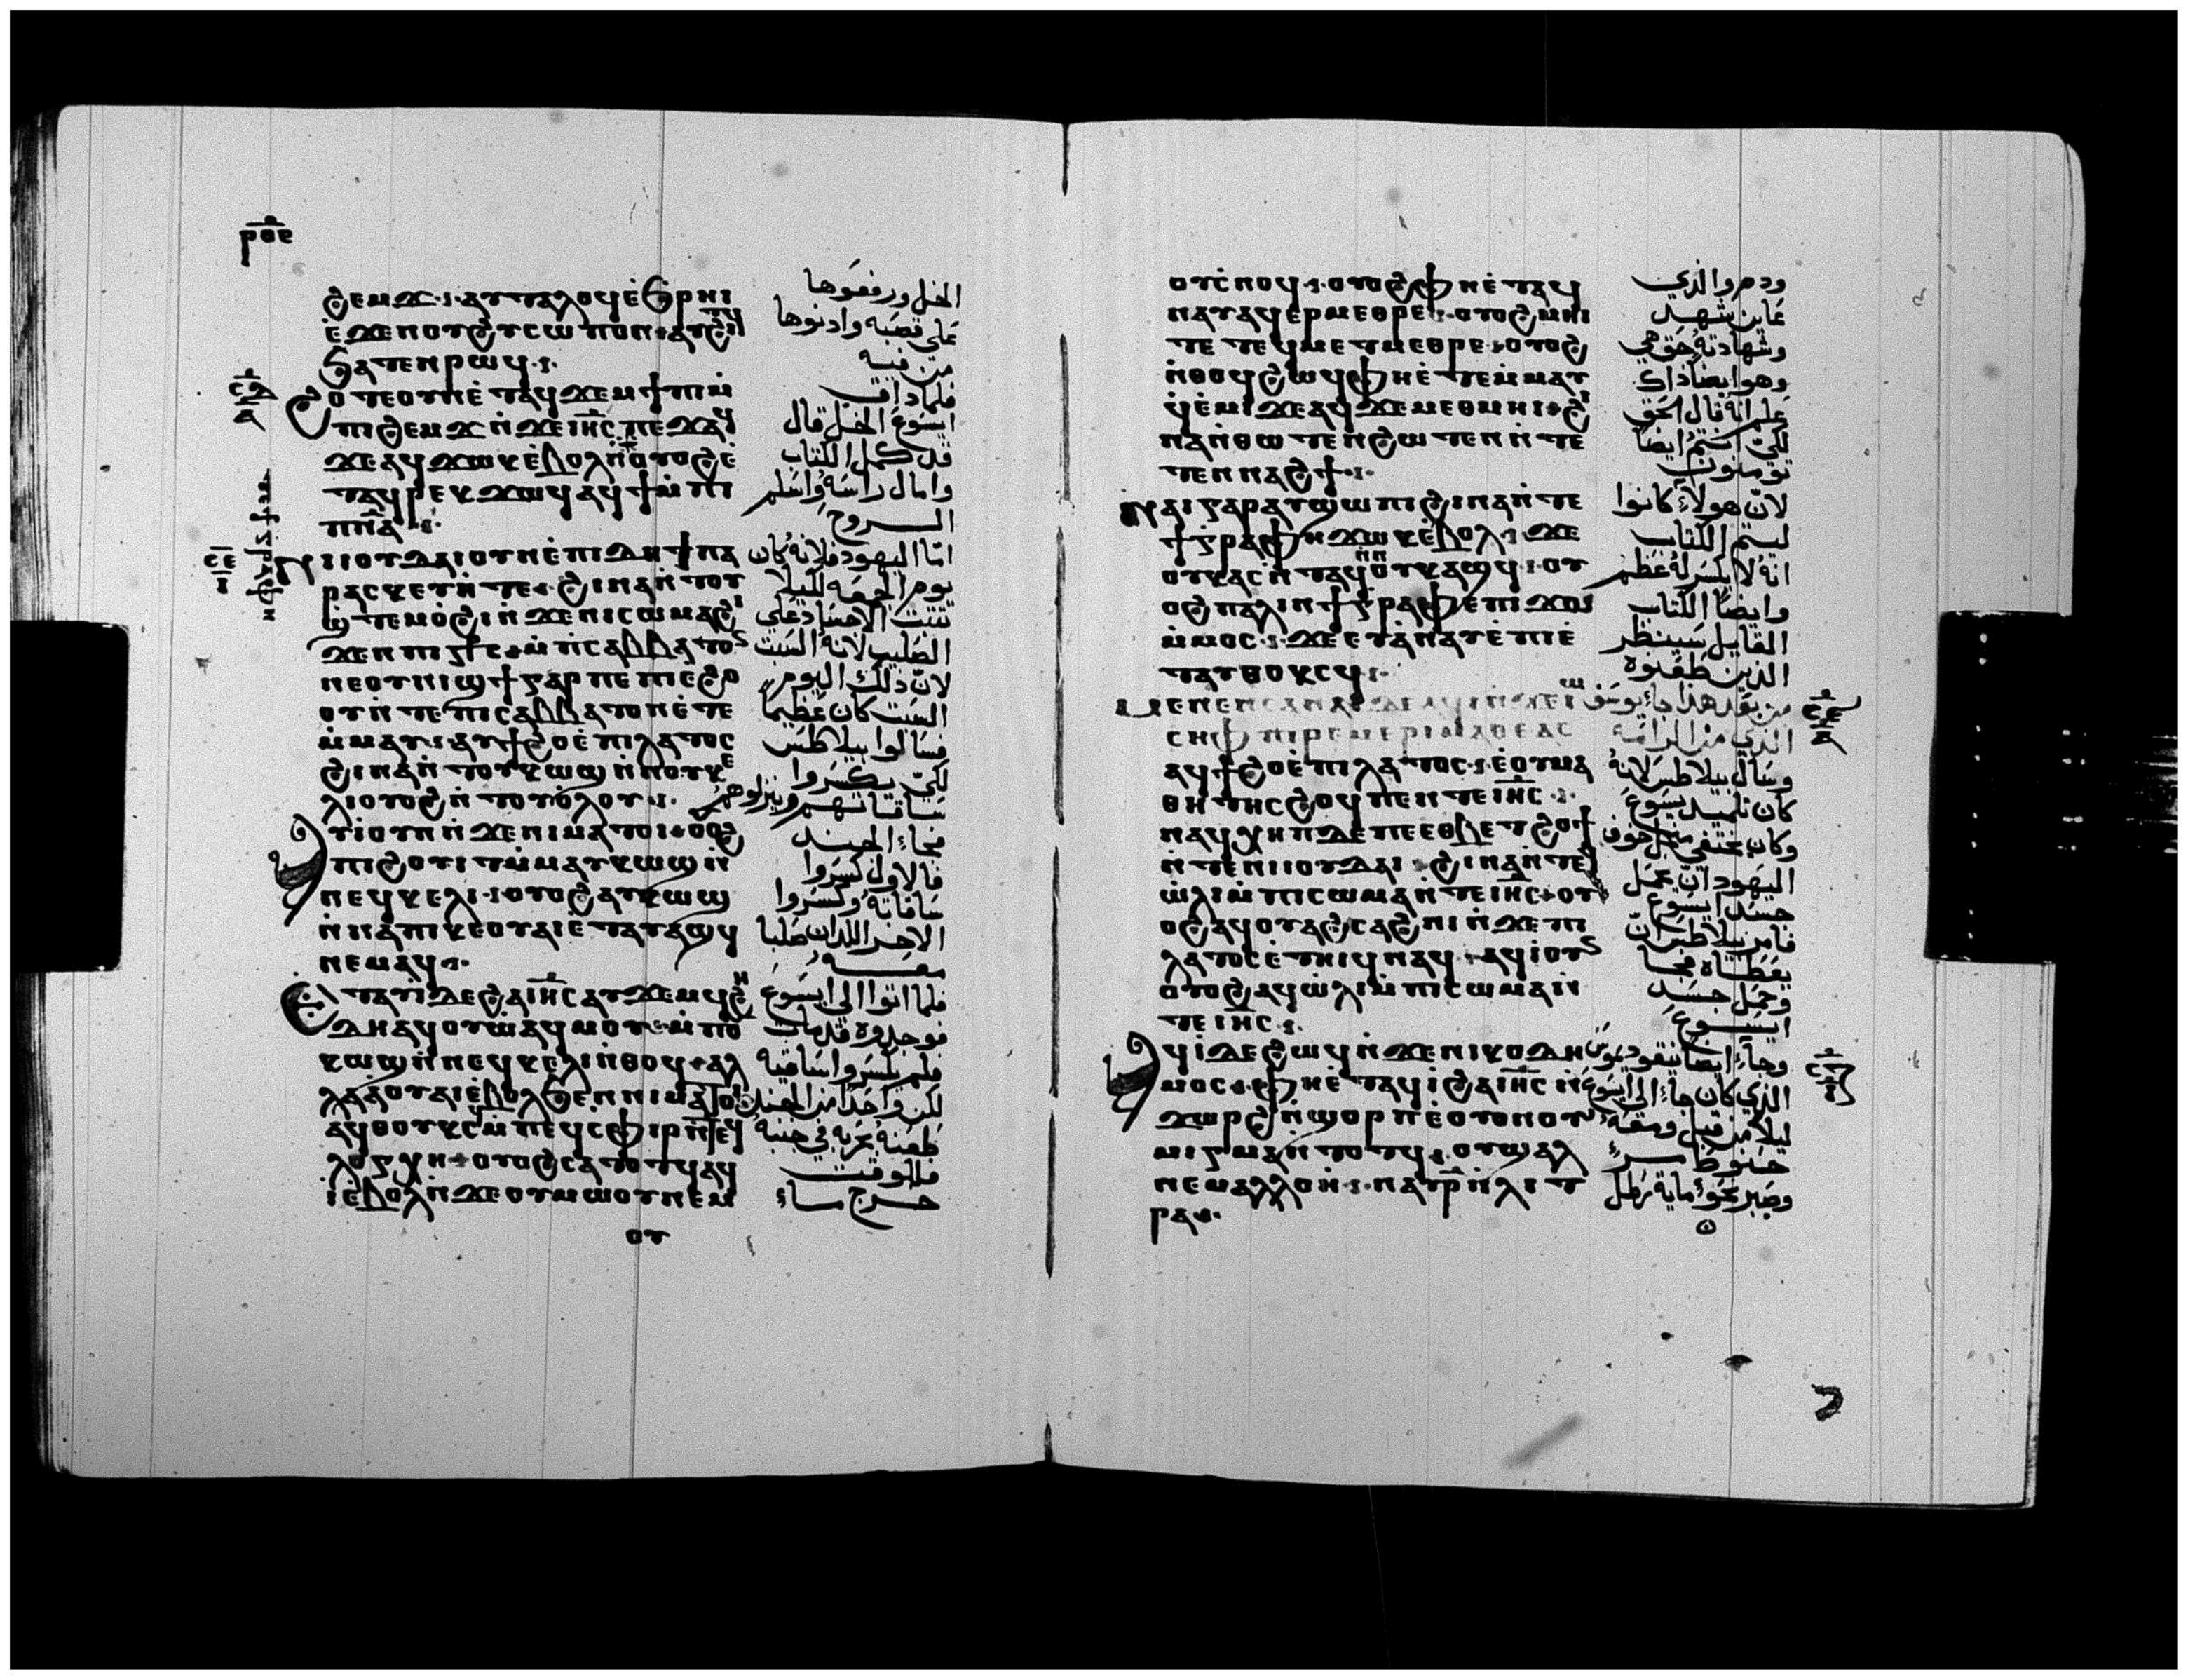 ⲣⲟⲉ
ϩⲉⲙϫ ⲁⲩⲧⲁⲗⲟϥ ⲉ̇ϧⲣⲏⲓ
ⲉ̇ϫⲉⲛ ⲟⲩϩⲩⲥⲱⲡⲟⲛ
ϧⲁⲧⲉⲛ ⲣⲱϥ
ϩⲟⲧⲉ ⲟⲩⲛ ⲉ̇ⲧⲁϥϫⲉⲙϯⲡⲓ ⲙ̇
ⲡⲓϩⲉⲙϫ ⲛ̇ϫⲉ ⲓⲏ̅ⲥ ⲡⲉϫⲁϥ
ϫⲉ ⲁϥϫⲱⲕ ⲉ̇ⲃⲟⲗ ⲟⲩⲟϩ ⲉ̇
ⲧⲁϥⲣⲉⲕ ϫⲱϥ ⲁϥϯ ⲙ̇ⲡⲓ
ⲡⲛ̅ⲁ
ⲛⲓⲓⲟⲩⲇⲁⲓ ⲟⲩⲛ ⲉ̇ⲡⲓⲇⲏ ϯⲡⲁ
ⲣⲁⲥⲕⲉⲩⲏ ⲧⲉ ϩⲓⲛⲁ ⲛ̇ⲧⲟⲩ
ϣ̇ⲧⲉⲙⲟ̇ϩⲓ ⲛ̇ϫⲉ ⲛⲓⲥⲱⲙⲁ ϩⲓ
ϫⲉⲛ ⲡⲓ ⲙ̇ⲡⲥⲁⲃⲃⲁⲧⲟⲥ
ⲛⲉ ⲟⲩⲛⲓϣϯ ⲅⲁⲣ ⲡⲉ ⲡⲓⲉ̇ϩⲟ
ⲟⲩ ⲛ̇ⲧⲉ ⲡⲓⲥⲁⲃⲃⲁⲧⲟⲛ ⲉ̇ⲧⲉ
ⲙ̇ⲙⲁⲩ ⲁⲩϯϩⲟ ⲉ̇ⲡⲓⲗⲁⲧⲟⲥ
ϩⲓⲛⲁ ⲛ̇ⲧⲟⲩⲕⲱϣ ⲛ̇ⲛⲟⲩⲕⲉ
ⲗⲓ ⲟⲩⲟϩ ⲛ̇ⲧⲟⲩⲟ̇ⲗⲟⲩ
ⲁⲩⲓ̇ ⲟⲩⲛ ⲛ̇ϫⲉ ⲛⲓⲙⲁⲧⲟⲓ ⲟⲟϩ
ⲡⲓϩⲟⲩⲓⲧ ⲙ̇ⲙⲁⲩⲕⲱϣ ⲛ̇
ⲛⲉϥⲕⲉⲗⲓ ⲟⲩⲟϩ ⲁⲩⲕⲱϣ
ⲛ̇ⲛⲁ ⲡⲓⲕⲉⲟⲩⲁⲓ ⲉ̇ⲧⲁⲩⲁϣϥ
ⲛⲉⲙⲁϥ
ⲉⲧⲁⲩⲓ̇ ⲇⲉ ϩⲁ ⲓⲏ̅ⲥ ⲁⲩϫⲉⲙϥ ϩⲏ
ⲇⲏ ⲁϥⲟⲩⲱ ⲁϥⲙⲟⲩ ⲙ̇ⲡⲟⲩ
ⲕⲱϣ ⲛ̇ⲛⲉϥⲕⲉⲗⲓ ⲛ̇ⲑⲟϥ ⲁⲗ
ⲗⲁ ⲁ̇ⲟⲩⲁⲓ ⲉ̇ⲃⲟⲗ ϧⲉⲛ ⲛⲓⲙⲁⲧⲟⲓ
ⲁϥⲑⲟⲩⲕⲥ ⲙ̇ⲡⲉϥⲥⲫⲓⲣ ⲛ̇ⲧⲉϥ
ⲗⲟⲅⲭⲏ ⲟⲩⲟϩ ⲥⲁⲧⲟⲧϥ ⲁϥ
ⲓ̇ ⲉ̇ⲃⲟⲗ ⲛ̇ϫⲉ ⲟⲩⲙⲱⲟⲩ ⲛⲉⲙ
ⲟⲩ
الخل ورفعوها
على قصبه وادنوها
من فيه
فلما ذاق
ايسوع الخل قال
قد كمل الكتاب
وامال راسه واسلم
الروح
امّا اليهود فلانه كان
يوم الجمعه لكيلا
تثبت الاجساد على
الصليب لانه السبت
لان ذلك اليوم
السبت كان عظيما
فسالوا بيلاطس
لكي يكسروا
ساقاتهم وينزلوهم
فجاء الجند
فالاول كسروا
ساقاته وكسروا
الاخر اللذان صلبا
معه
فلما اتوا الى ايسوع
فوجدوه قد مات
فلم يكسروا ساقيه
لكن واحدا من الجند
طعنه بحربه في جنبه
فللوقت
خرج ماء
ⲟⲩⲥ̇ⲛⲟϥ ⲟⲩⲟϩ ⲫⲏ ⲉ̇ⲧⲁϥ
ⲛⲁⲩ ⲁϥⲉⲣⲙⲉⲑⲣⲉ ⲟⲩⲟϩ ⲙⲏⲓ
ⲧⲉ ⲧⲉϥⲙⲉⲧⲙⲉⲑⲣⲉ ⲟⲩⲟϩ
ⲛ̇ⲑⲟϥ ϩⲱϥ ⲫⲏ ⲉ̇ⲧⲉⲙ̇ⲙⲁⲩ
ϥⲉ̇ⲙⲓ ϫⲉ ⲁϥϫⲉ ⲙⲉⲑⲙⲏⲓ ϩⲓ
ⲛⲁ ⲛ̇ⲑⲱⲧⲉⲛ ϩⲱⲧⲉⲛ ⲛ̇ⲧⲉ
ⲧⲉⲛⲛⲁϩϯ
ⲛⲁⲓ ⲅⲁⲣ ⲁⲩϣⲱⲡⲓ ϩⲓⲛⲁ ⲛ̇ⲧⲉ
ϯⲅⲣⲁⲫⲏ ϫⲱⲕ ⲉ̇ⲃⲟⲗ ϫⲉ
ⲟⲩⲕⲁⲥ ⲛ̇ⲧⲁϥ ⲛ̇ⲛⲟⲩⲕⲁϣϥ ⲟⲩ
ⲟϩ ⲡⲁⲗⲓⲛ ϯⲅⲣⲁⲫⲉ ⲡⲓϫⲱ
ⲙ̇ⲙⲟⲥ ϫⲉ ⲉⲩⲁ̇ⲛⲁⲩ ⲉ̇ⲡⲓⲉ̇
ⲧⲁⲩⲑⲟⲕⲥϥ
ⲙⲉⲛⲉⲛⲥⲁ ⲛⲁⲓ ⲇⲉ ⲁϥⲓ̇ ⲛ̇ϫⲉ ⲓⲱ
ⲥⲏⲫ ⲡⲓⲣⲉⲙⲉⲣⲓⲙⲁⲑⲉⲁⲥ
ⲁϥϯϩⲟ ⲉ̇ⲡⲓⲗⲁⲧⲟⲥ ⲉ̇ⲟⲩⲙⲁ
ⲑⲏⲧⲏⲥ ϩⲟϥ ⲡⲉ ⲛⲧⲉ ⲓⲏ̅ⲥ
ⲛⲁϥⲭⲏⲡ ⲇⲉ ⲡⲉ ⲉⲑⲃⲉ ⲧϩⲟϯ
ⲛ̇ⲧⲉ ⲛⲓⲓⲟⲩⲇⲁⲓ ϩⲓⲛⲁ ⲛ̇ⲧⲉϥ
ⲱ̇ⲗⲓ ⲙ̇ⲡⲓⲥⲱⲙⲁ ⲛ̇ⲧⲉ ⲓⲏ̅ⲥ ⲟⲩ
ⲟϩ ⲁϥⲟⲩⲁϩⲥⲁϩⲛⲓ ⲛ̇ϫⲉ ⲡⲓ
ⲗⲁⲧⲟⲥ ⲉ̇ⲧⲏⲓϥ ⲛⲁϥ ⲁϥⲓ̇ ⲟⲩⲛ
ⲟⲩⲟϩ ⲁϥⲱ̇ⲗⲓ ⲙ̇ⲡⲓⲥⲱⲙⲁ ⲛ̇
ⲧⲉ ⲓⲏ̅ⲥ
ⲁϥⲓ̇ ⲇⲉ ϩⲱϥ ⲛ̇ϫⲉ ⲛⲓⲕⲟⲇⲏ
ⲙⲟⲥ ⲫⲏ ⲉ̇ⲧⲁϥⲓ̇ ϩⲁ ⲓⲏ̅ⲥ ⲛ̇
ϫⲱⲣϩ ⲛ̇ϣⲟⲣⲡ ⲉ̇ⲟⲩⲟⲛ ⲟⲩ
ⲙⲓⲅⲙⲁ ⲛ̇ⲧⲟⲧϥ ⲟⲩϣⲁⲗ
ⲛⲉⲙ ⲁⲗⲗⲟⲏ̇ ⲛⲁⲩ ⲣ̅ ⲛ̇ⲗⲓⲧ
ⲣⲁ
ودم والذي
عاين شهد
وشهادته حق هي
وهو ايضا ذاك
علم انه قال الحق
لكي انتم ايضا
تؤمنون
لانّ هولاء كانوا
ليتم الكتاب
انه لا يكسر له عظم
وايضا الكتاب
القايل سينظر
الذين طعنوه
من بعد هذا جاء يوسف
الذي من الرامه
وسال بيلاطس لانه
كان تلميد يسوع
وكان مختفي من اجل خوف
اليهود ان يحمل
جسد ايسوع
فامر بيلاطس ان
يعطاه فجا
وحمل جسد
ايسوع
وجاء ايضا نيقوديموس
الذي كان جاء الى ايسوع
ليلا من قبل ومعه
حنوط مر
وصبر نحو ماية رطل